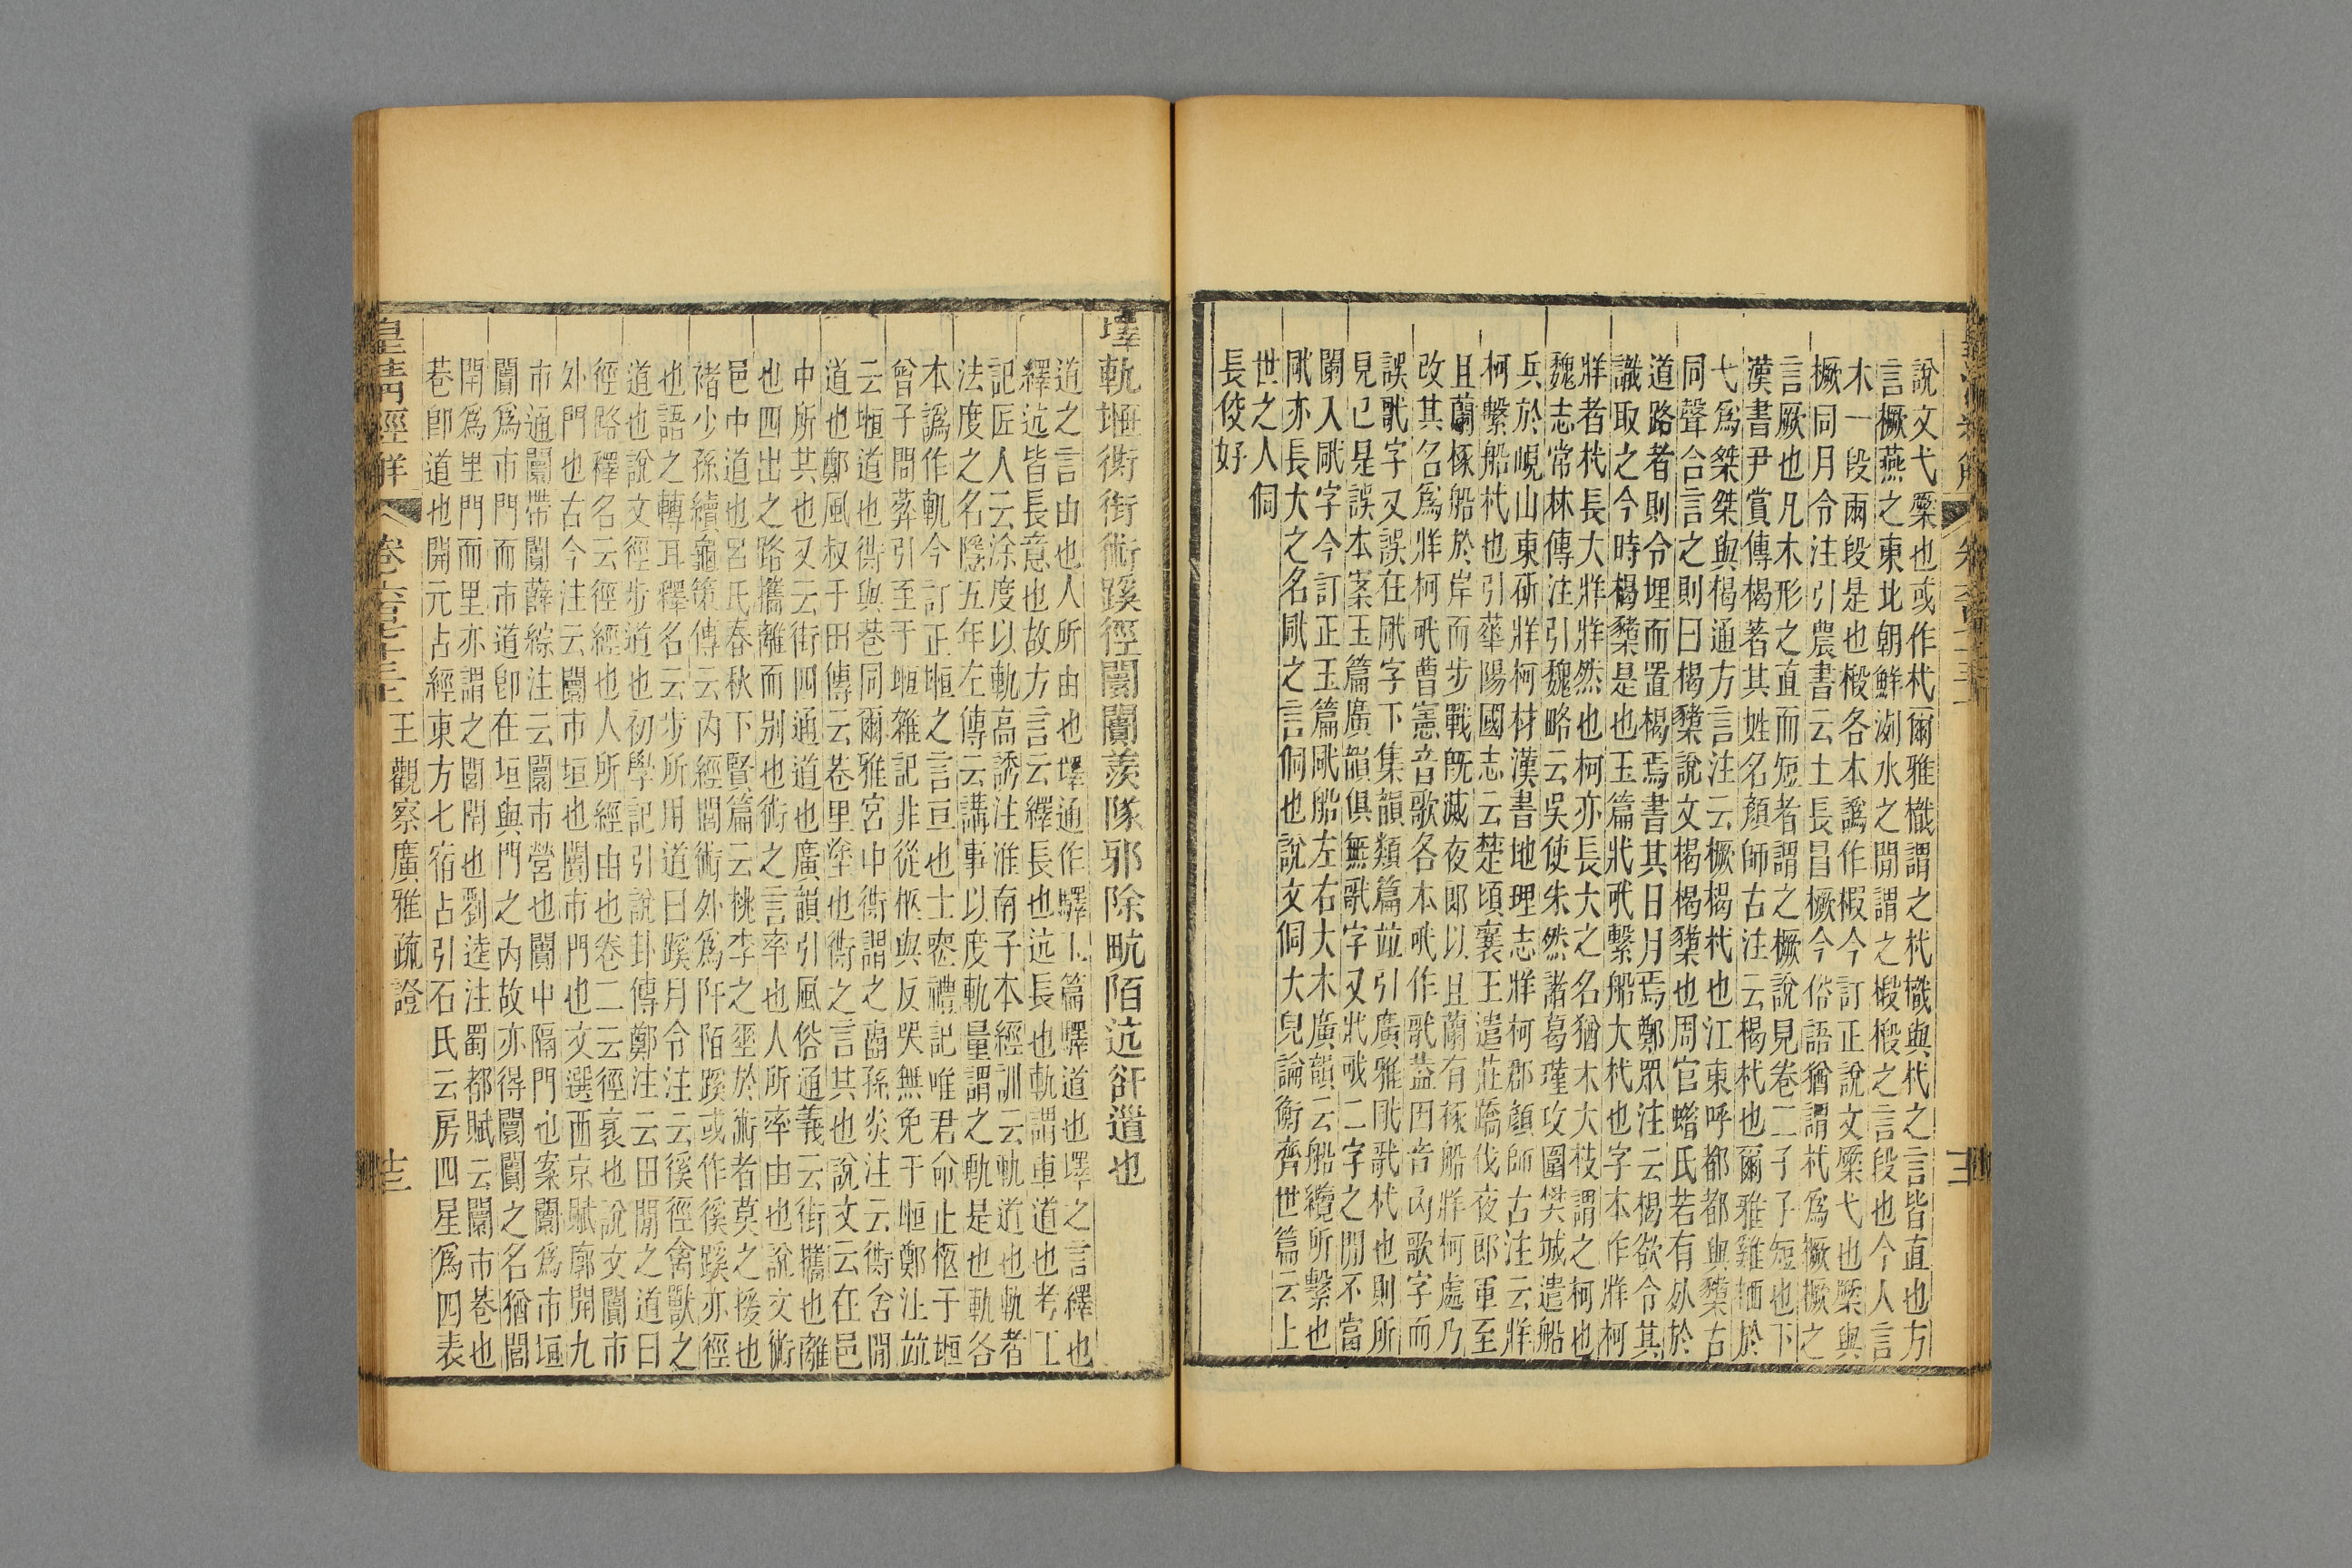 說文弋橜也或作杙爾雅樴謂之杙樴與杙之言皆直也方
言橛燕之東北朝鮮洌水之閒謂之椴椴之言段也今人言
木一段兩段是也椴各本譌作椵今訂正說文橜弋也橜與
橛同月令注引農書云土長冒橛今俗語猶謂杙爲橛橛之
言厥也凡木形之直而短者謂之橛說見卷二孑孓短也下
漢書尹賞傳楬著其姓名顏師古注云楬杙也爾雅雞棲於
弋爲榤榤與楬通方言注云橛楬杙也江東呼都都與櫫古
同聲合言之則曰楬櫫說文楬楬櫫也周官蜡氏若有死於
道路者則令埋而置楬焉書其日月焉鄭眾注云楬欲令其
識取之今時楬櫫是也玉篇戕𣐊繫船大杙也字本作牂柯
牂者杙長大牂牂然也柯亦長大之名猶木大枝謂之柯也
魏志常林傳注引魏略云吳使朱然諸葛瑾攻圍樊城遣船
兵於峴山東斫牂柯材漢書地理志牂柯郡顏師古注云牂
柯繫船杙也引華陽國志云楚頃襄王遣莊蹻伐夜郎軍至
且蘭椓船於岸而步戰旣滅夜郎以且蘭有椓船牂柯處乃
改其名爲牂柯
世之人侗
長佼好
墿軌堩衖街術蹊徑閬闠羨隊邪除畩陌迒𧮾道也
道之言由也人所由也墿通作驛上篇驛道也墿之言繹也
繹迒皆長意也故方言云繹長也迒長也軌謂車道也考工
記匠人云涂度以軌高誘注淮南子本經訓云軌道也軌者
法度之名隱五年左傳云講事以度軌量謂之軌是也軌各
本譌作軓今訂正堩之言亘也士喪禮記唯君命止柩于堩
曾子問葬引至于堩雜記非從柩與反哭無免于堩鄭注竝
云堩道也衖與巷同爾雅宮中衖謂之壼孫炎注云衖舍閒
道也鄭風叔于田傳云巷里塗也衖之言共也說文云在邑
中所共也又云街四通道也廣韻引風俗通義云街攜也離
也四出之路攜離而別也術之言率也人所率由也說文術
邑中道也呂氏春秋下賢篇云桃李之垂於術者莫之援也
褚少孫續龜策傳云內經閭術外爲阡陌蹊或作徯蹊亦徑
也語之轉耳釋名云步所用道曰蹊月令注云徯徑禽獸之
道也說文徑步道也初學記引說卦傳鄭注云田閒之道曰
徑路釋名云徑經也人所經由也卷二云徑衺也說文闠市
外門也古今注云闤市垣也闠市門也文選西京賦廓開九
市通闤帶闠薛綜注云闤市營也闠中隔門也案闤爲市垣
闠爲市門而市道卽在垣與門之內故亦得闤闠之名猶閭
閈爲里門而里亦謂之閭閈也劉逵注蜀都賦云闤市巷也
巷卽道也開元占經東方七宿占引石氏云房四星爲四表
皇清經解 卷六百七十三上 王觀察廣雅疏證 十三